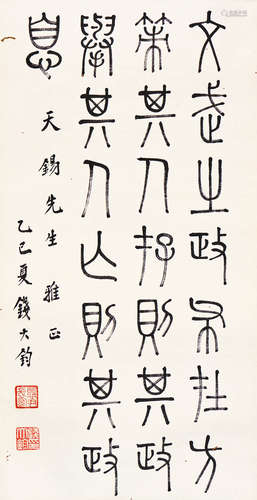 文武之政布在方
策其人存則其政
舉其人亡則其政
息
天錫先生 雅正
乙巳夏錢大鈞